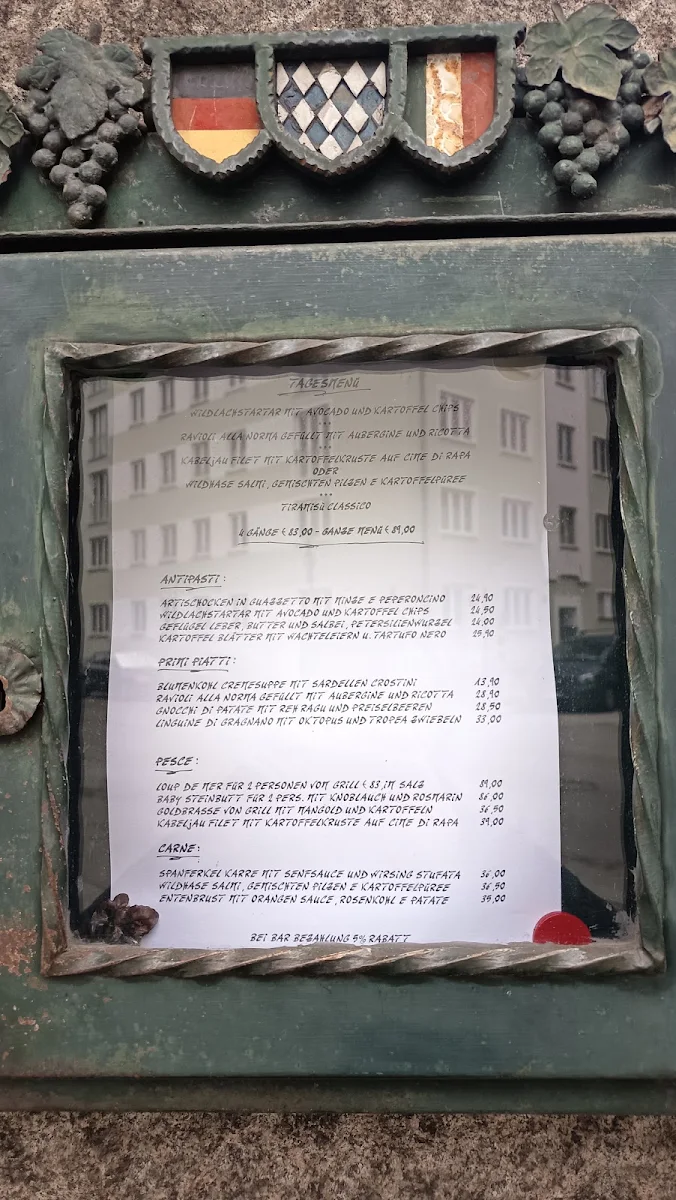 TAGESMENÜ
WILDLACHSTARTAR MIT AVOCADO UND KARTOFFEL CHIPS
***
RAVIOLI ALLA NORMA GEFÜLLT MIT AUBERGINE UND RICOTTA
***
KABELJAU FILET MIT KARTOFFELKRUSTE AUF CIME DI RAPA
ODER
WILDHASE SALMI, GEMISCHTEN PILZEN E KARTOFFELPÜREE
***
TIRAMISÚ CLASSICO
4 GÄNGE € 83,00 - GANZE MENÜ € 89,00
ANTIPASTI:
ARTISCHOCKEN IN GUAZZETTO MIT MINZE E PEPERONCINO 24,90
WILDLACHSTARTAR MIT AVOCADO UND KARTOFFEL CHIPS 24,50
GEFLÜGEL LEBER, BUTTER UND SALBEI, PETERSILIENWURZEL 24,00
KARTOFFEL BLÄTTER MIT WACHTELEIERN U. TARTUFO NERO 25,90
PRIMI PIATTI:
BLUMENKOHL CREMESUPPE MIT SARDELLEN CROSTINI 13,90
RAVIOLI ALLA NORMA GEFÜLLT MIT AUBERGINE UND RICOTTA 28,90
GNOCCHI DI PATATE MIT REH RAGU UND PREISELBEEREN 28,50
LINGUINE DI GRAGNANO MIT OKTOPUS UND TROPEA ZWIEBELN 33,00
PESCE:
LOUP DE MER FÜR 2 PERSONEN VOM GRILL € 83,IN SALZ 89,00
BABY STEINBUTT FÜR 2 PERS. MIT KNOBLAUCH UND ROSMARIN 86,00
GOLDBRASSE VOM GRILL MIT MANGOLD UND KARTOFFELN 36,50
KABELJAU FILET MIT KARTOFFELKRUSTE AUF CIME DI RAPA 39,00
CARNE:
SPANFERKEL KARRE MIT SENFSAUCE UND WIRSING STUFATA 36,00
WILDHASE SALMI, GEMISCHTEN PILZEN E KARTOFFELPÜREE 36,50
ENTENBRUST MIT ORANGEN SAUCE, ROSENKOHL E PATATE 35,00
BEI BAR BEZAHLUNG 5% RABATT